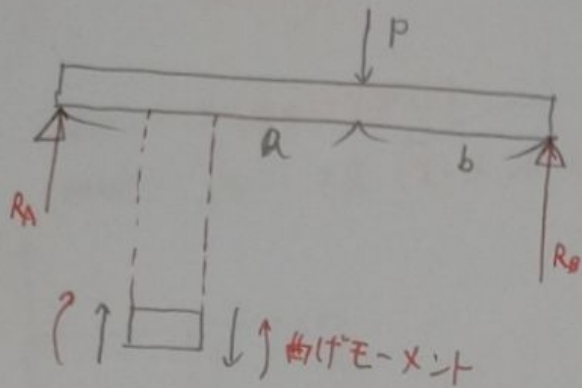 P
a
b
RA
RB
曲げモーメント